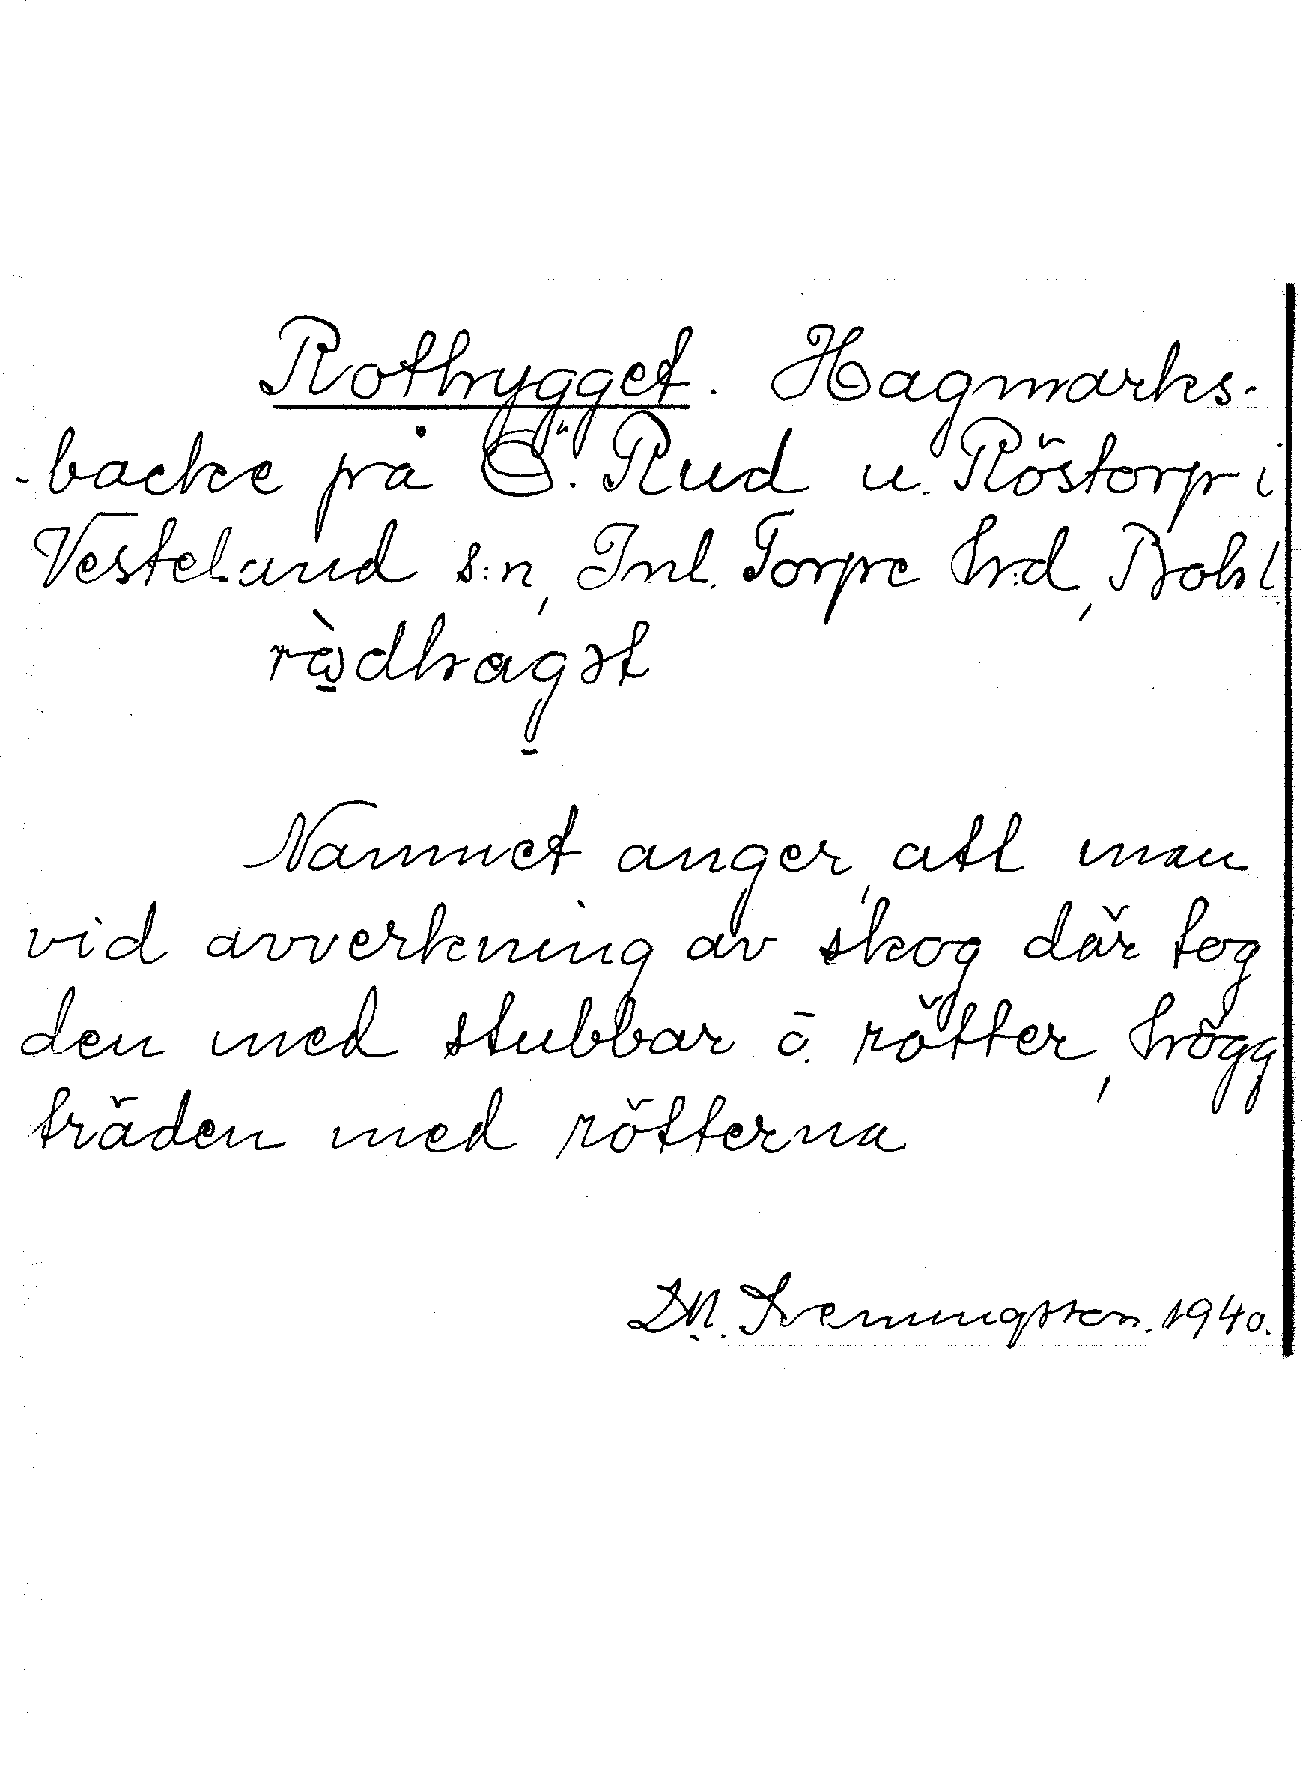 Rothygget. Hagmarks-
-backe på Ö. Rud u. Röstorp i
Vesterland s:n, Inl. Torpe h:d, Bohl
Namnet anger, att man
vid avverkning av skog där tog
den med stubbar o. rötter, högg
träden med rötterna
1940.